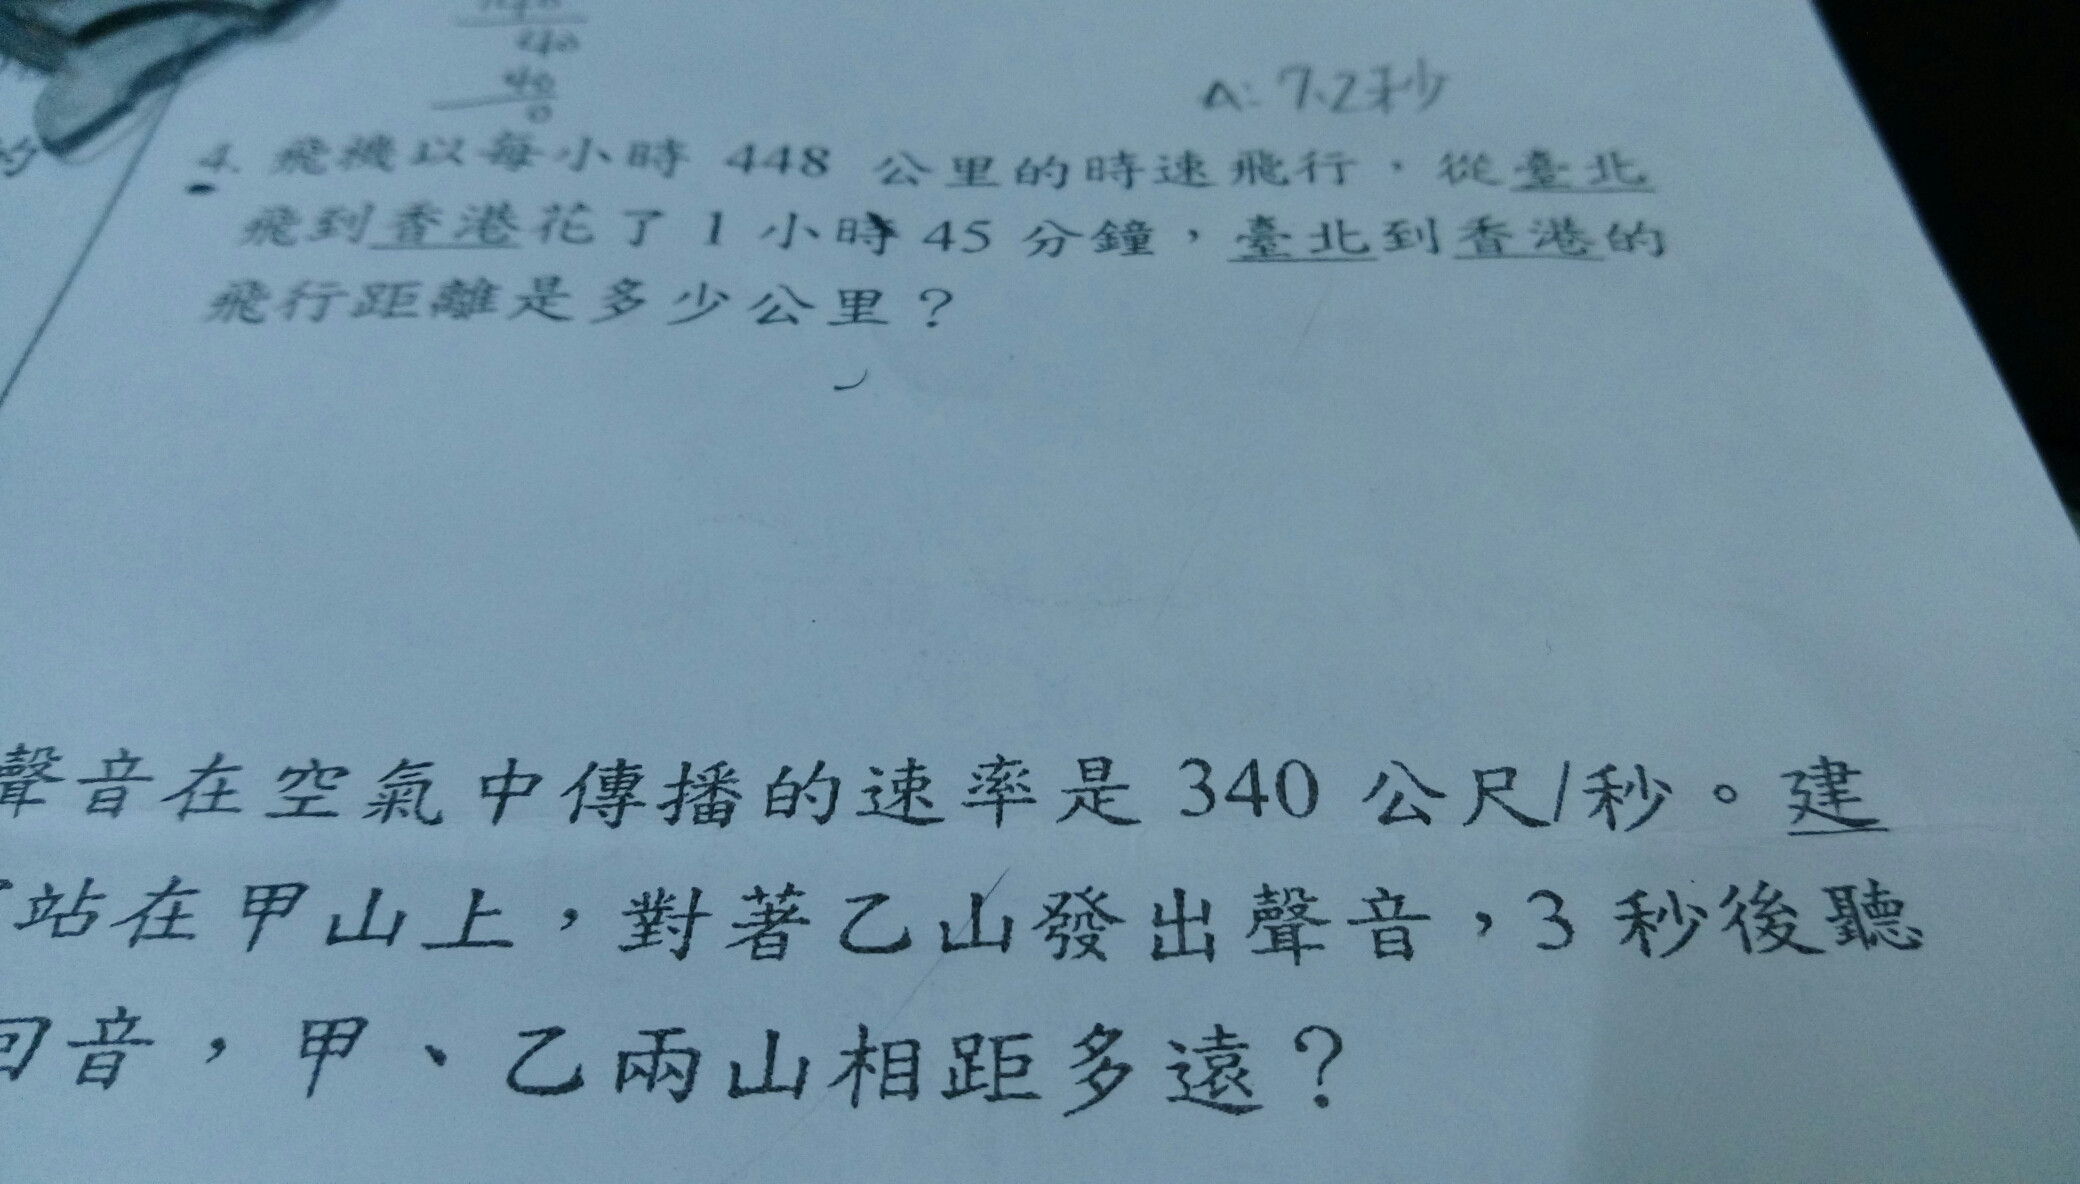 240
40
0
A: 7.2秒
4. 飛機以每小時 448 公里的時速飛行，從臺北
飛到香港花了 1 小時 45 分鐘，臺北到香港的
飛行距離是多少公里？
聲音在空氣中傳播的速率是 340 公尺/秒。建
站在甲山上，對著乙山發出聲音，3 秒後聽
回音，甲、乙兩山相距多遠？